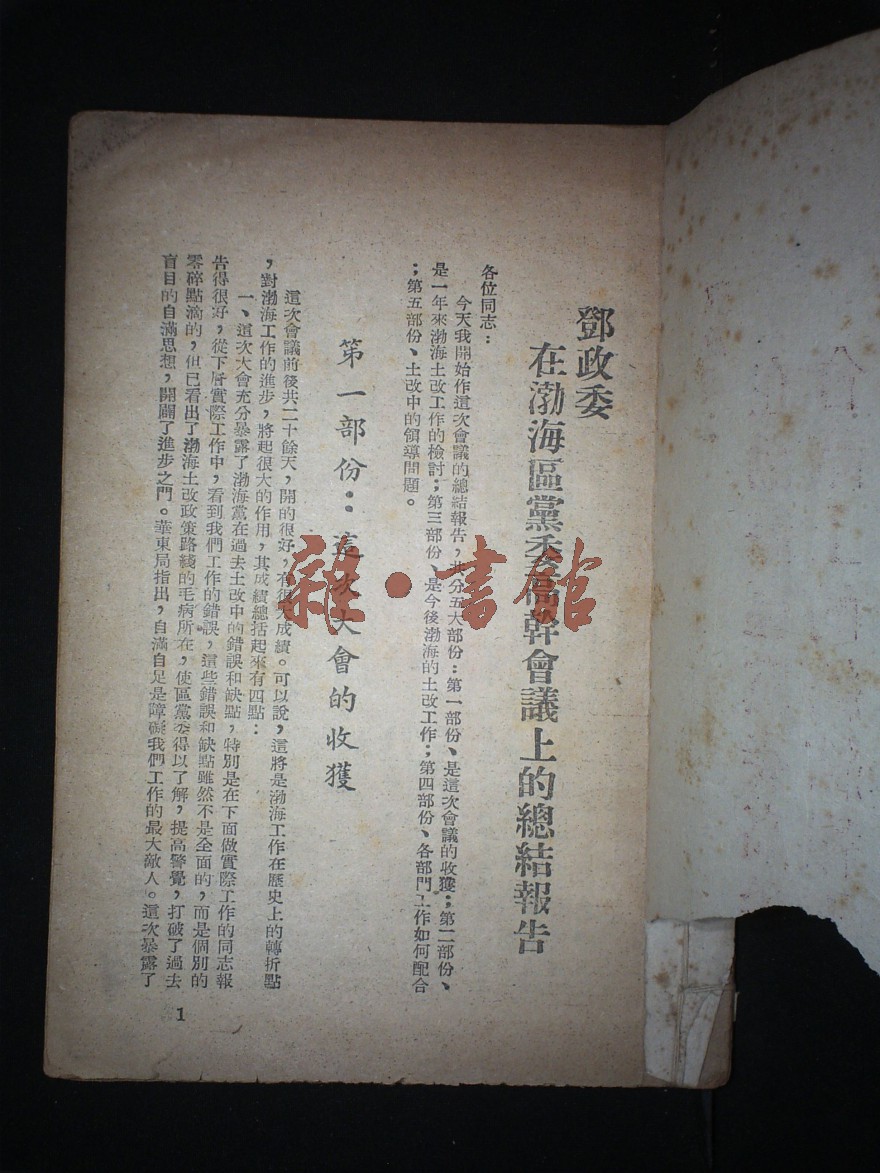 鄧政委
在渤海區黨委高幹會議上的總結報告
各位同志：
今天我開始作這次會議的總結報告，共分五大部份：第一部份、是這次會議的收獲；第二部份、
是一年來渤海土改工作的檢討；第三部份、是今後渤海的土改工作；第四部份、各部門工作如何配合
；第五部份、土改中的領導問題。
第一部份：這次大會的收獲
這次會議前後共二十餘天，開的很好，有很大成績。可以說，這將是渤海工作在歷史上的轉折點
，對渤海工作的進步，將起很大的作用，其成績總括起來有四點：
一、這次大會充分暴露了渤海黨在過去土改中的錯誤和缺點，特別是在下面做實際工作的同志報
告得很好，從下層實際工作中，看到我們工作的錯誤，這些錯誤和缺點雖然不是全面的，而是個別的
零碎點滴的，但已看出了渤海土改政策路綫的毛病所在，使區黨委得以了解，提高警覺，打破了過去
盲目的自滿思想，開闢了進步之門。華東局指出，自滿自足是障礙我們工作的最大敵人。這次暴露了
1
雜·書館